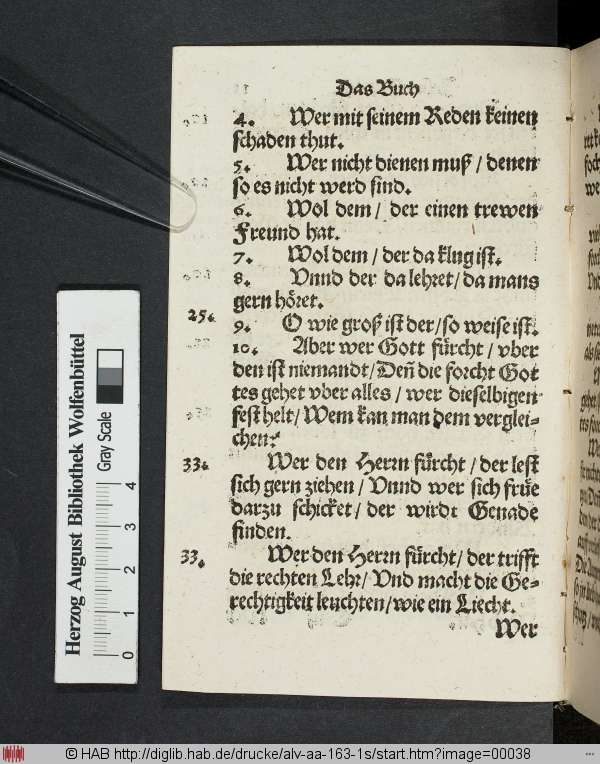 Das Buch
4. Wer mit seinem Reden keinen
schaden thut.
5. Wer nicht dienen muß / denen
so es nicht werd sind.
6. Wol dem / der einen trewen
Freund hat.
7. Wol dem / der da klug ist.
8. Vnnd der da lehret / da mans
gern höret.
25. 9. O wie groß ist der / so weise ist.
10. Aber wer Gott fürcht / vber
den ist niemandt / Deñ die forcht Got
tes gehet vber alles / wer dieselbigen
fest helt / Wem kan man dem verglei=
chen?
33. Wer den Herrn fürcht / der lest
sich gern ziehen / Vnnd wer sich früe
darzu schicket / der wirdt Genade
finden.
33. Wer den Herrn fürcht / der trifft
die rechten Lehr / Vnd macht die Ge=
rechtigkeit leuchten / wie ein Liecht.
Wer
Herzog August Bibliothek Wolfenbüttel
Gray Scale
0 1 2 3 4
© HAB http://diglib.hab.de/drucke/alv-aa-163-1s/start.htm?image=00038